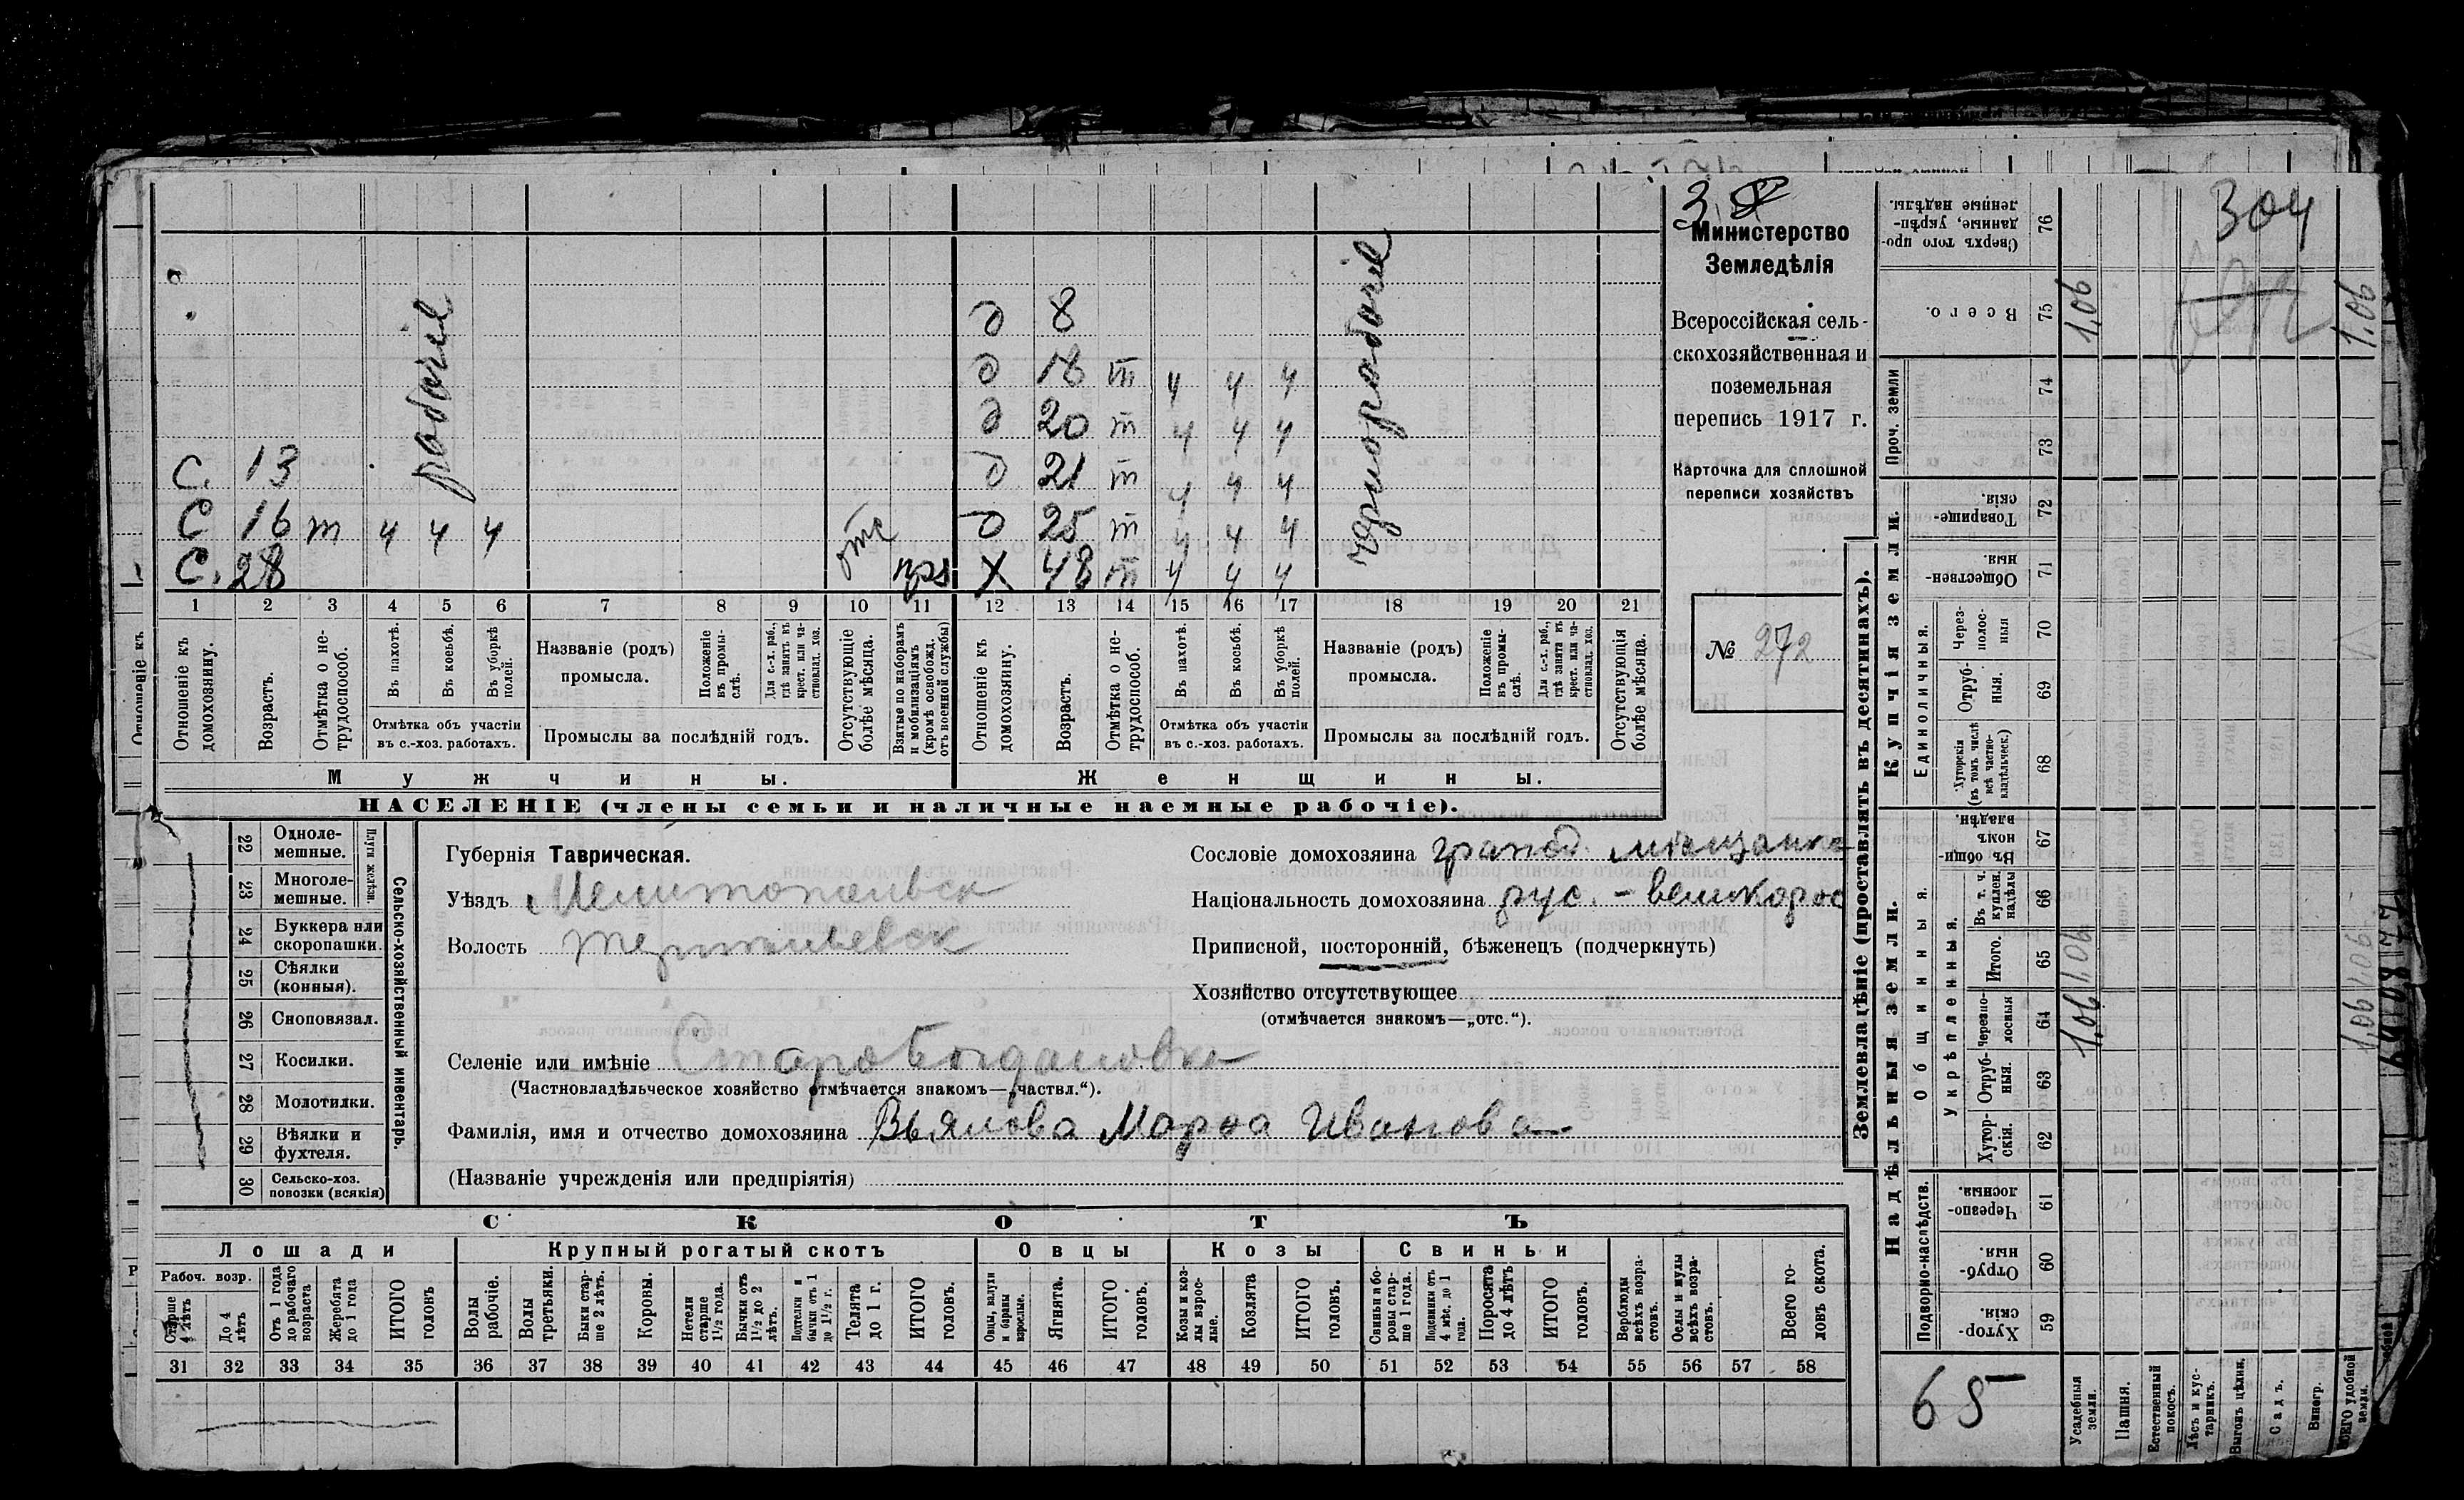 304
3
Министерство
Земледѣлія
Всероссійская сель-
скохозяйственная и
поземельная
перепись 1917 г.
Карточка для сплошной
переписи хозяйствъ
№ 272
д 8
д 18 т ч ч ч
д 20 т ч ч ч
С. 13 д 21 т ч ч ч
С 16 т ч ч ч д 25 т ч ч ч
С. 28 отс Х 48 т ч ч ч
чернорабочіе
1 2 3 4 5 6 7 8 9 10 11 12 13 14 15 16 17 18 19 20 21
Отношеніе къ домохозяину.
Возрастъ.
Отмѣтка о не-трудоспособ.
Въ пахотѣ.
Въ косьбѣ.
Въ уборкѣ полей.
Отмѣтка объ участіи
въ с.-хоз. работахъ.
Названіе (родъ)
промысла.
Положеніе въ промы-слѣ.
Для с.-х. раб., гдѣ занятъ въ крест. или ча-стновлад. хоз.
Промыслы за послѣдній годъ.
Отсутствующіе болѣе мѣсяца.
Взятые по наборамъ и мобилизаціямъ (кромѣ освобожд. отъ военной службы)
Отношеніе къ домохозяину.
Возрастъ.
Отмѣтка о не-трудоспособ.
Въ пахотѣ.
Въ косьбѣ.
Въ уборкѣ полей.
Отмѣтка объ участіи
въ с.-хоз. работахъ.
Названіе (родъ)
промысла.
Положеніе въ промы-слѣ.
Для с.-х. раб., гдѣ занята въ крест. или ча-стновлад. хоз.
Промыслы за послѣдній годъ.
Отсутствующія болѣе мѣсяца.
Мужчины. Женщины.
НАСЕЛЕНІЕ (члены семьи и наличные наемные рабочіе).
22 Одноле-мешные.
23 Многоле-мешные.
Плуги желѣзн.
24 Буккера или скоропашки.
25 Сѣялки (конныя).
26 Сноповязал.
27 Косилки.
28 Молотилки.
29 Вѣялки и фухтеля.
30 Сельско-хоз. повозки (всякія)
Сельско-хозяйственный инвентарь.
Губернія Таврическая.
Уѣздъ Мелитопольск
Волость
Селеніе или имѣніе Старо Богдановка
(Частновладѣльческое хозяйство отмѣчается знакомъ—„частвл.“).
Фамилія, имя и отчество домохозяина Вьялова Марфа Иванова
(Названіе учрежденія или предпріятія)
Сословіе домохозяина мѣщанка
Національность домохозяина рус. - великорос
Приписной, посторонній, бѣженецъ (подчеркнуть)
Хозяйство отсутствующее
(отмѣчается знакомъ—„отс.“).
СКОТЪ
Лошади Крупный рогатый скотъ Овцы Козы Свиньи
Рабоч. возр.
Старше 4 лѣтъ
До 4 лѣтъ
Отъ 1 года до рабочаго возраста
Жеребята до 1 года
ИТОГО головъ
Волы рабочіе.
Волы третьяки.
Быки стар-ше 2 лѣтъ.
Коровы.
Нетели старше 1½ года.
Бычки отъ 1½ до 2 лѣтъ.
Подтелки и бычки отъ 1 до 1½ г.
Телята до 1 г.
ИТОГО головъ.
Овцы, валухи и бараны взрослые.
Ягнята.
ИТОГО головъ.
Козы и коз-лы взрос-лые.
Козлята
ИТОГО головъ.
Свиньи и бо-ровы стар-ше 1 года.
Подсвинки отъ 4 мѣс. до 1 года.
Поросята
ИТОГО головъ.
Верблюды всѣхъ возра-стовъ.
Ослы и мулы всѣхъ возра-стовъ.
Всего го-ловъ скота.
31 32 33 34 35 36 37 38 39 40 41 42 43 44 45 46 47 48 49 50 51 52 53 54 55 56 57 58
Землевладѣніе (проставлять въ десятинахъ).
Сверхъ того про-данные, укрѣп-ленные надѣлы. 76
Всего. 75 1,06 1.06
Проч. земли 74 73
Купчія земли.
Товарище-скія. 72
Обществен-ныя 71
Единоличныя.
Через-полос-ныя 70
Отруб-ныя. 69
Хуторскія (въ томъ числѣ всѣ частно-владѣльческ.) 68
Надѣльныя земли.
Общинныя.
Въ общи-номъ владѣн. 67
Укрѣпленныя.
Въ т. ч. куплен. надѣлы 66
Итого. 65 1.06 1.06
Черезпо-лосныя 64 1.06 1.06
Отруб-ныя. 63
Хутор-скія. 62
Подворно-наслѣдств.
Черезпо-лосныя. 61
Отруб-ныя. 60
Хутор-скія 59
65
Усадебныя земли.
Пашня.
Естественный покосъ.
Лѣсъ и кус-тарникъ.
Выгонъ цѣлин.
Садъ.
Виногр.
ВСЕГО удобной земли.